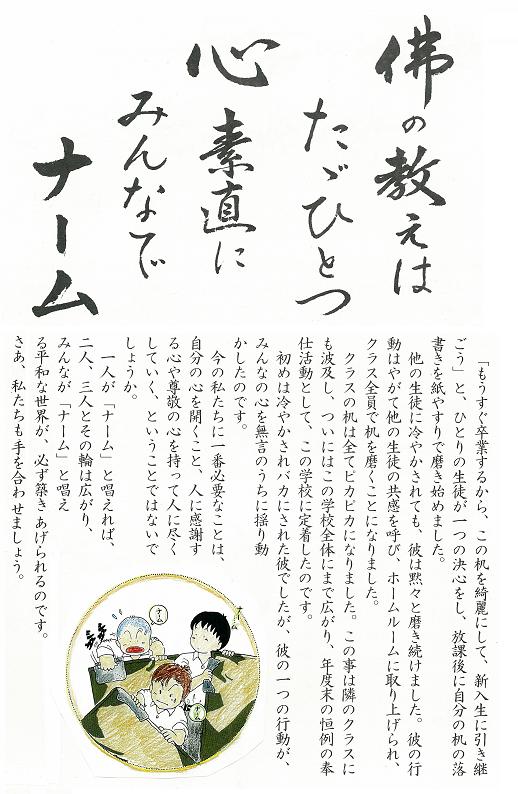 佛の教えは
たゞひとつ
心素直に
みんなで
ナーム
「もうすぐ卒業するから、この机を綺麗にして、新入生に引き継
ごう」と、ひとりの生徒が一つの決心をし、放課後に自分の机の落
書きを紙やすりで磨き始めました。
他の生徒に冷やかされても、彼は黙々と磨き続けました。彼の行
動はやがて他の生徒の共感を呼び、ホームルームに取り上げられ、
クラス全員で机を磨くことになりました。
クラスの机は全てピカピカになりました。この事は隣のクラスに
も波及し、ついにはこの学校全体にまで広がり、年度末の恒例の奉
仕活動として、この学校に定着したのです。
初めは冷やかされバカにされた彼でしたが、彼の一つの行動が、
みんなの心を無言のうちに揺り動
かしたのです。
今の私たちに一番必要なことは、
自分の心を開くこと、人に感謝す
る心や尊敬の心を持って人に尽く
していく、ということではないで
しょうか。
一人が「ナーム」と唱えれば、
二人、三人とその輪は広がり、
みんなが「ナーム」と唱え
る平和な世界が、必ず築きあげられるのです。
さあ、私たちも手を合わせましょう。
ナーム
ナーム